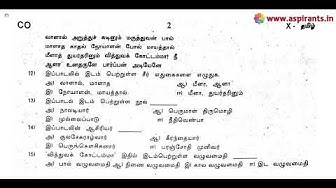 www.aspirants.in
CO
2
X - தமிழ்
வாளால் அறுத்துச் சுடினும் மருத்துவன் பால்
மாளாத காதல் நோயாளன் போல் மாயத்தால்
மீளாத் துயர்தரினும் வித்துவக் கோட்டம்மா! நீ
ஆளா உனதருளே பார்ப்பன் அடியேனே
12) இப்பாடலில் இடம் பெற்றுள்ள சீர் எதுகைகளை எழுதுக.
அ) வாளால், மாளாத ஆ) மீளா, ஆளா
இ) நோயாளன், மாயத்தால் ஈ) மீளா, துயர்தரினும்
13) இப்பாடல் இடம் பெற்றுள்ள நூல்
அ) நாலடியார் ஆ) பெருமாள் திருமொழி
இ) முல்லைப்பாட்டு ஈ) நீதிவெண்பா
14) இப்பாடலின் ஆசிரியர்
அ) குலசேகராழ்வார் ஆ) கீரந்தையார்
இ) பெருங்கௌசிகனார் ஈ) பரஞ்சோதி முனிவர்
15) 'வித்துவக் கோட்டம்மா' இதில் இடம்பெற்றுள்ள வழுவமைதி
அ) பால் வழுவமைதி ஆ) திணை வழுவமைதி இ) கால வழுவமைதி ஈ) இட வழுவமைதி